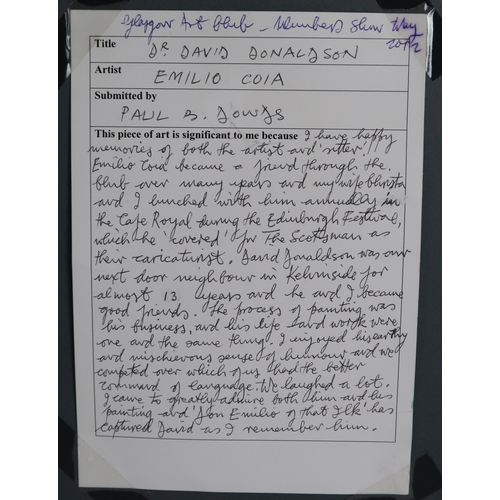 Glasgow Art Club - Members Show May
2012
Title DR. DAVID DONALDSON
Artist EMILIO COIA
Submitted by
PAUL B. DOWDS
This piece of art is significant to me because I have happy
memories of both the artist and 'sitter'!
Emilio Coia became a friend through the
Club over many years and my wife Christa
and I lunched with him annually in
the Cafe Royal during the Edinburgh Festival,
which he 'covered' for The Scotsman as
their caricaturist. David Donaldson was our
next door neighbour in Kelvinside for
almost 13 years and he and I became
good friends. The process of painting was
his business, and his life and work were
one and the same thing. I enjoyed his earthy
and mischievous sense of humour and we
competed over which of us had the better
command of language. We laughed a lot.
I came to greatly admire both him and his
painting and 'Don Emilio of that Ilk' has
captured David as I remember him.